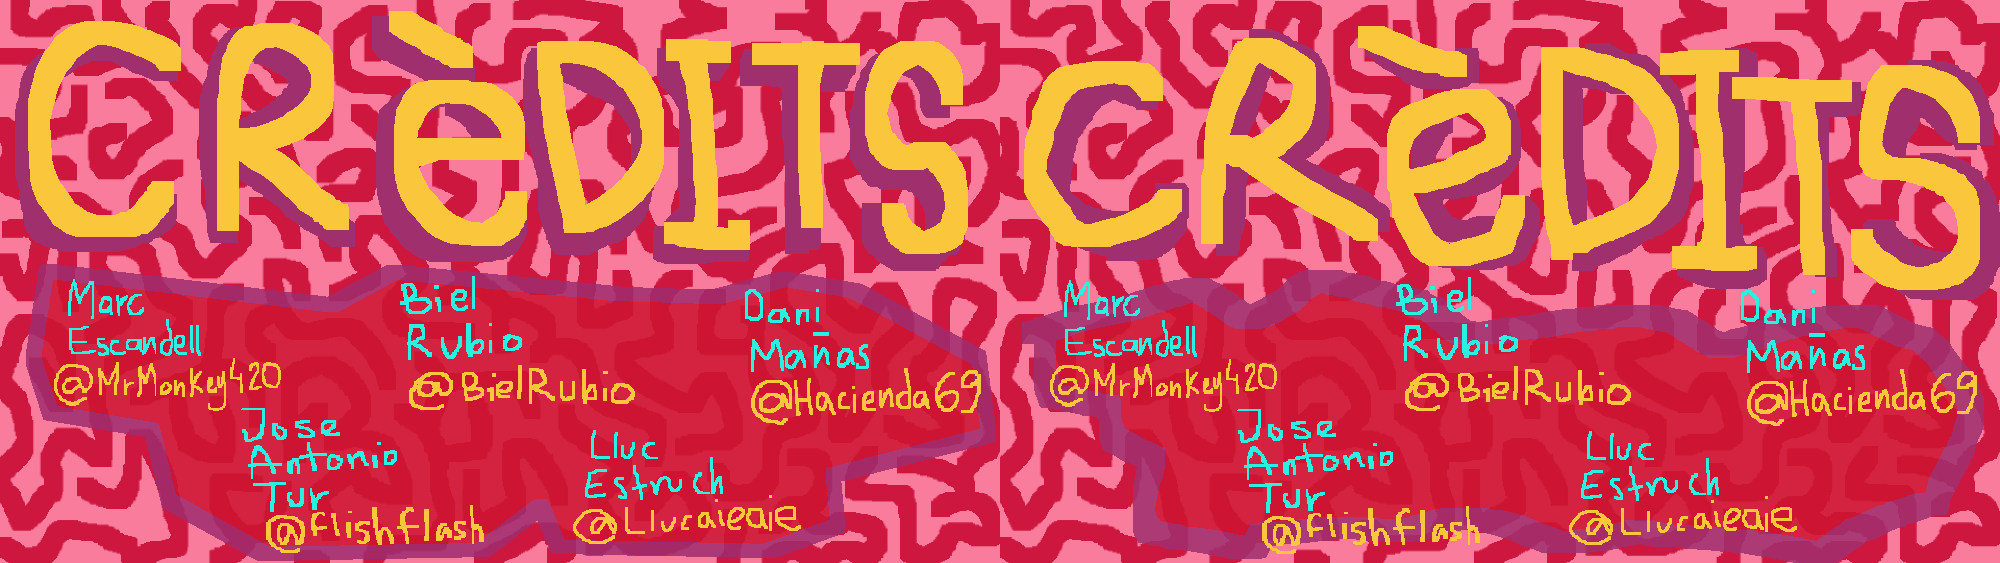 CRèDITS
Marc
Escandell
@MrMonkey420
Biel
Rubio
@BielRubio
Dani
Mañas
@Hacienda69
Jose
Antonio
Tur
@flishflash
Lluc
Estruch
@Llucaieaie
CRèDITS
Marc
Escandell
@MrMonkey420
Biel
Rubio
@BielRubio
Dani
Mañas
@Hacienda69
Jose
Antonio
Tur
@flishflash
Lluc
Estruch
@Llucaieaie